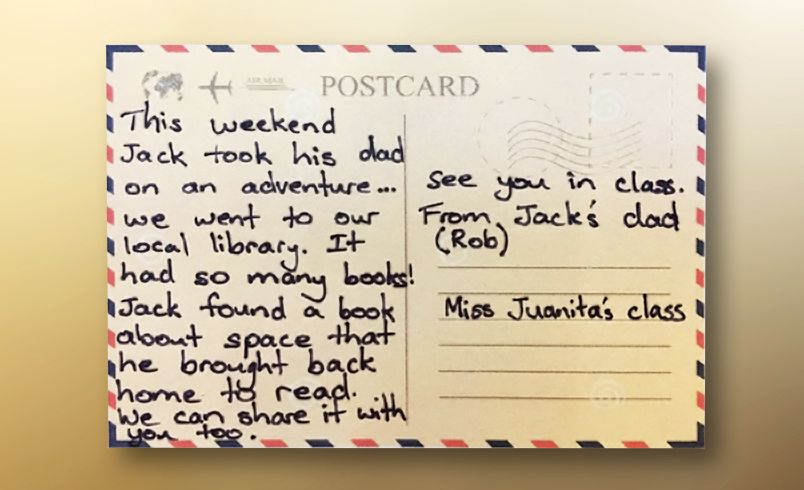 AIR MAIL
POSTCARD
This weekend
Jack took his dad
on an adventure...
we went to our
local library. It
had so many books!
Jack found a book
about space that
he brought back
home to read.
We can share it with
you too.
See you in class.
From Jack's dad
(Rob)
Miss Juanita's class